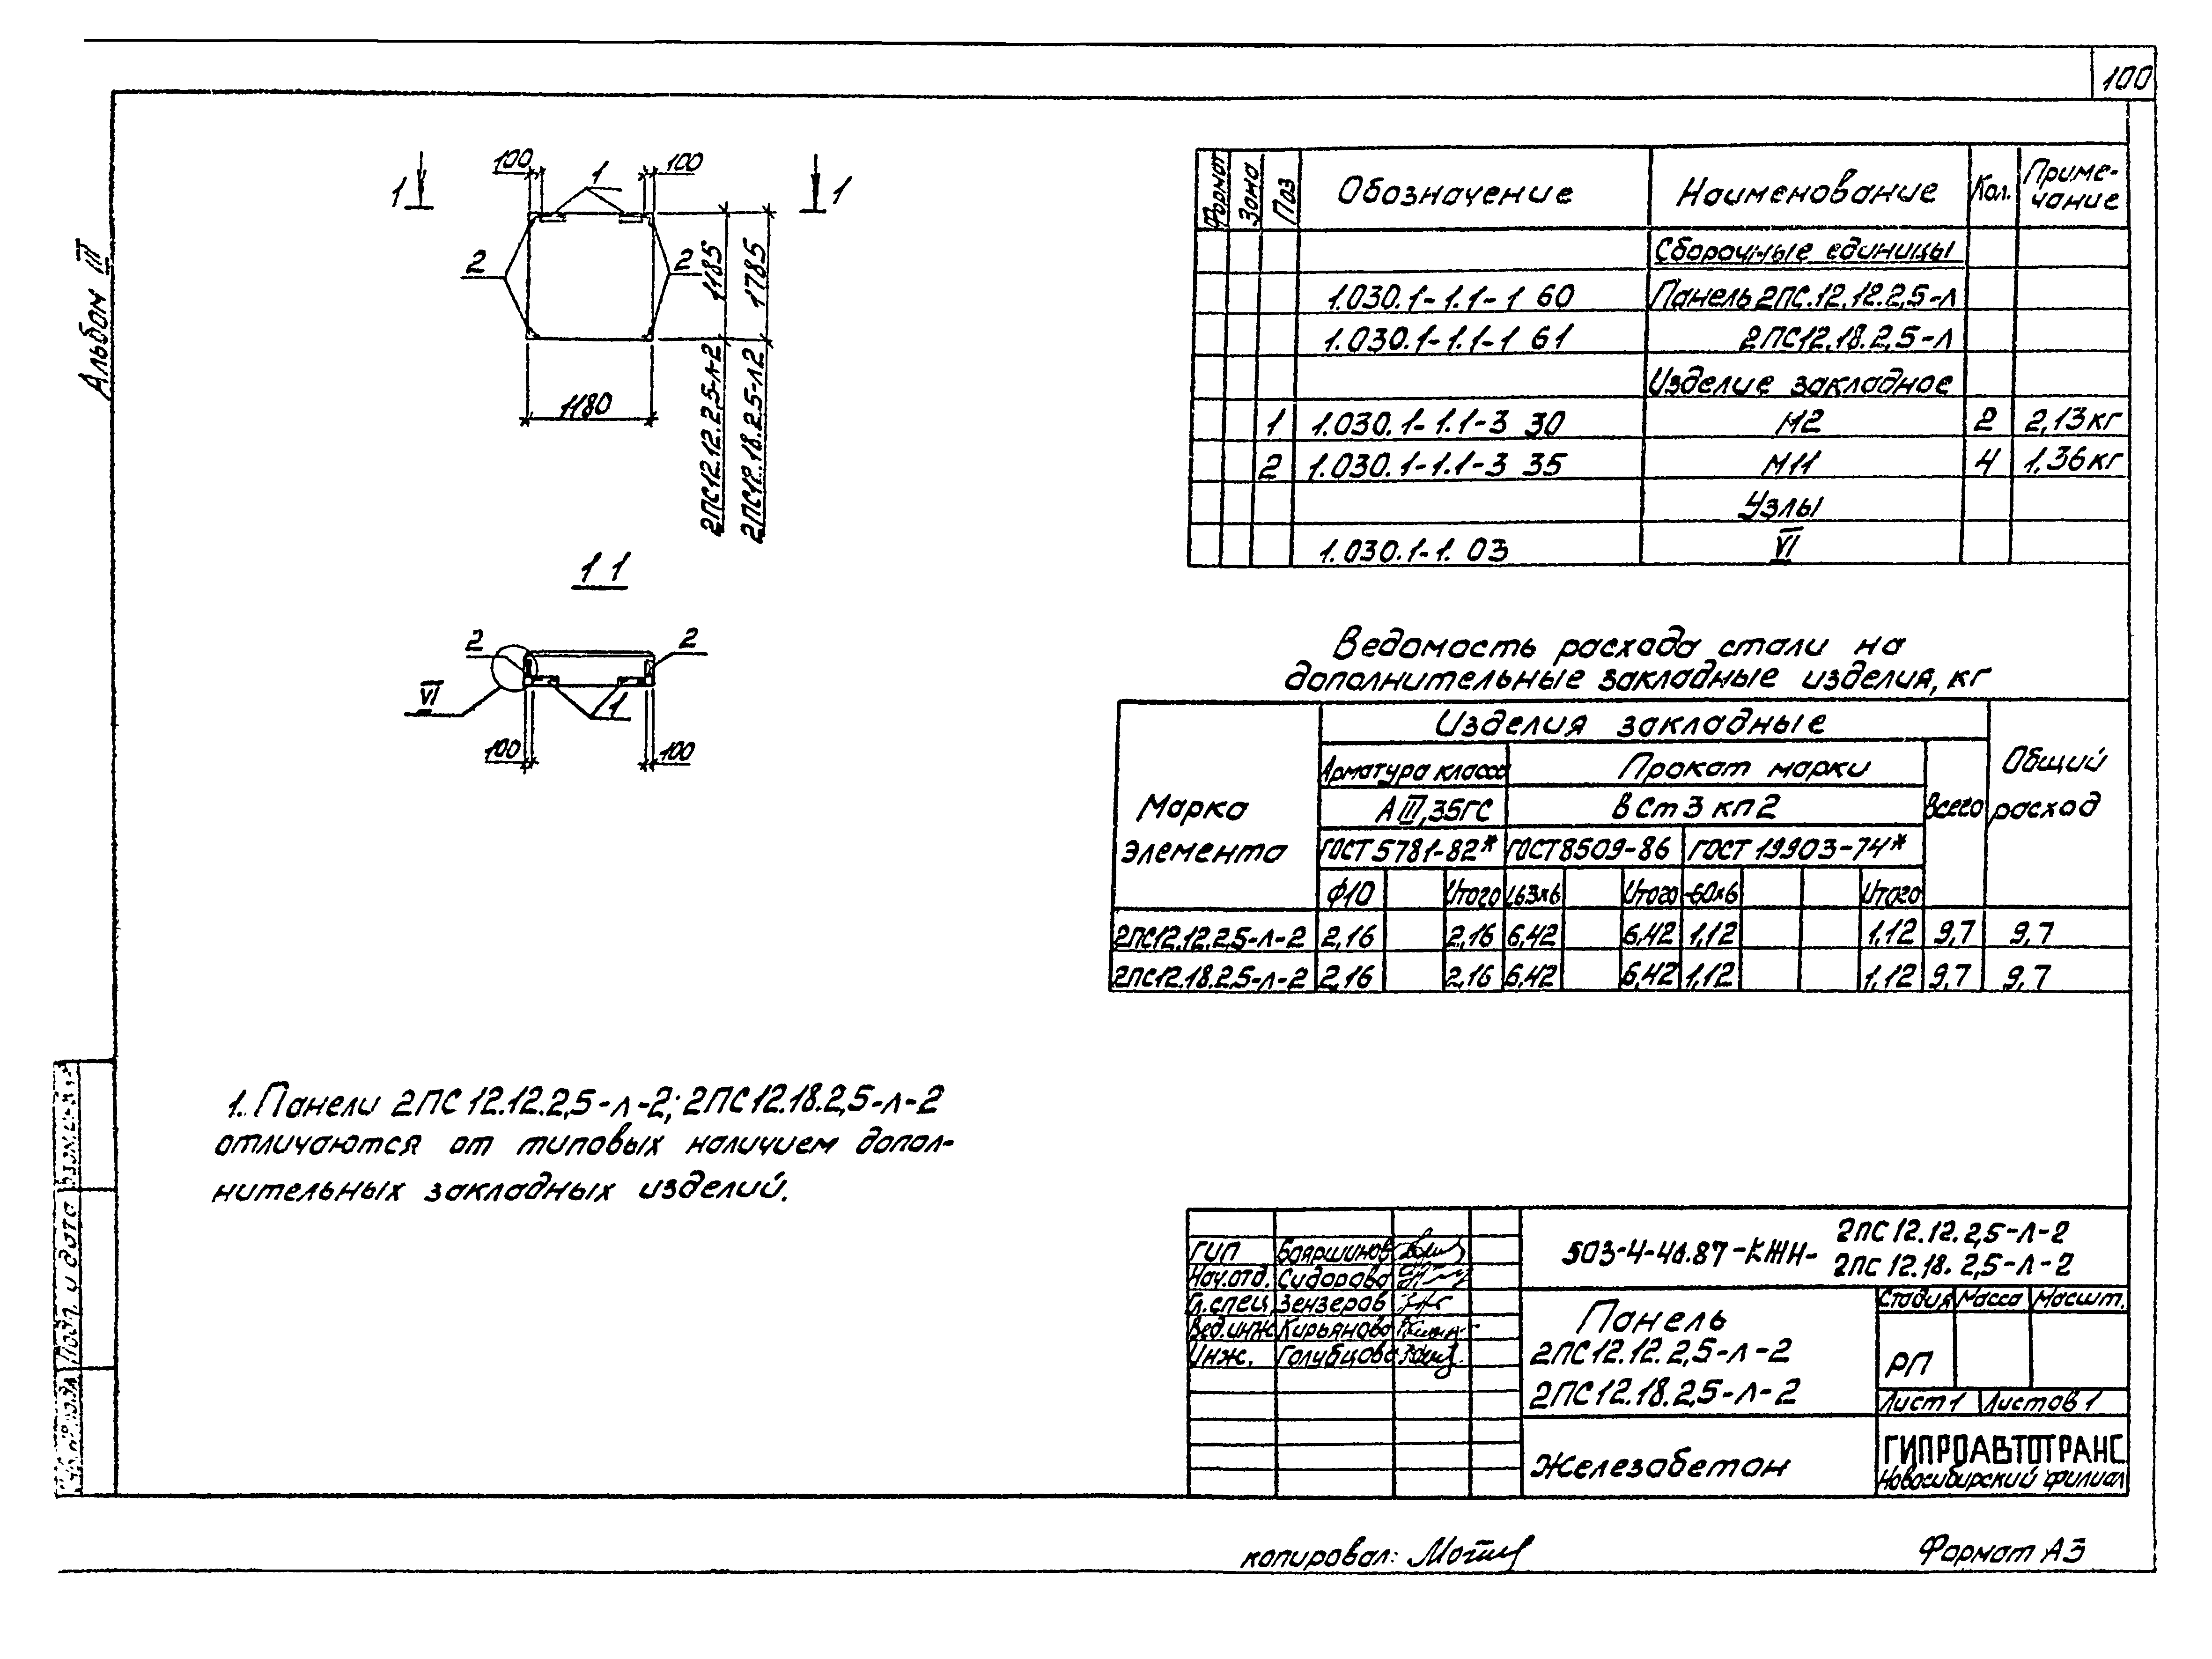 100
Альбом III
100
1
100
1
1
2
2
1185
1785
1180
2ПС12.12.2,5-л-2
2ПС12.18.2.5-л2
1 1
2
2
VI
1
100
100
Формат Зона Поз Обозначение Наименование Кол. Приме-
чание
Сборочные единицы
1.030.1-1.1-1 60 Панель 2ПС.12.12.2,5-л
1.030.1-1.1-1 61 2ПС12.18.2,5-л
Изделие закладное
1 1.030.1-1.1-3 30 М2 2 2,13кг
2 1.030.1-1.1-3 35 М11 4 1.36кг
Узлы
1.030.1-1. 03 VI
Ведомость расхода стали на
дополнительные закладные изделия, кг
Марка
элемента
Изделия закладные
Общий
расход
Арматура класса Прокат марки
А III, 35ГС ВСт3кп2 Всего
ГОСТ 5781-82* ГОСТ8509-86 ГОСТ 19903-74*
Ф10 Итого L63х6 Итого -60х6 Итого
2ПС12.12.2,5-л-2 2,16 2,16 6,42 6,42 1,12 1,12 9,7 9,7
2ПС12.18.2,5-л-2 2,16 2,16 6,42 6,42 1,12 1,12 9,7 9,7
1. Панели 2ПС12.12.2,5-л-2; 2ПС12.18.2,5-л-2
отличаются от типовых наличием допол-
нительных закладных изделий.
Подп. и дата
ГИП Бояршинов
Нач.отд. Сидорова
Гл.спец. Зензеров
Вед.инж. Кирьянова
Инж. Голубцова
503-4-46.87-КЖН-
2ПС12.12.2,5-л-2
2ПС12.18.2,5-л-2
Панель
2ПС12.12.2,5-л-2
2ПС12.18.2,5-л-2
Стадия Масса Масшт.
РП
Лист 1 Листов 1
Железобетон
ГИПРОАВТОТРАНС
Новосибирский филиал
копировал:
Формат А3